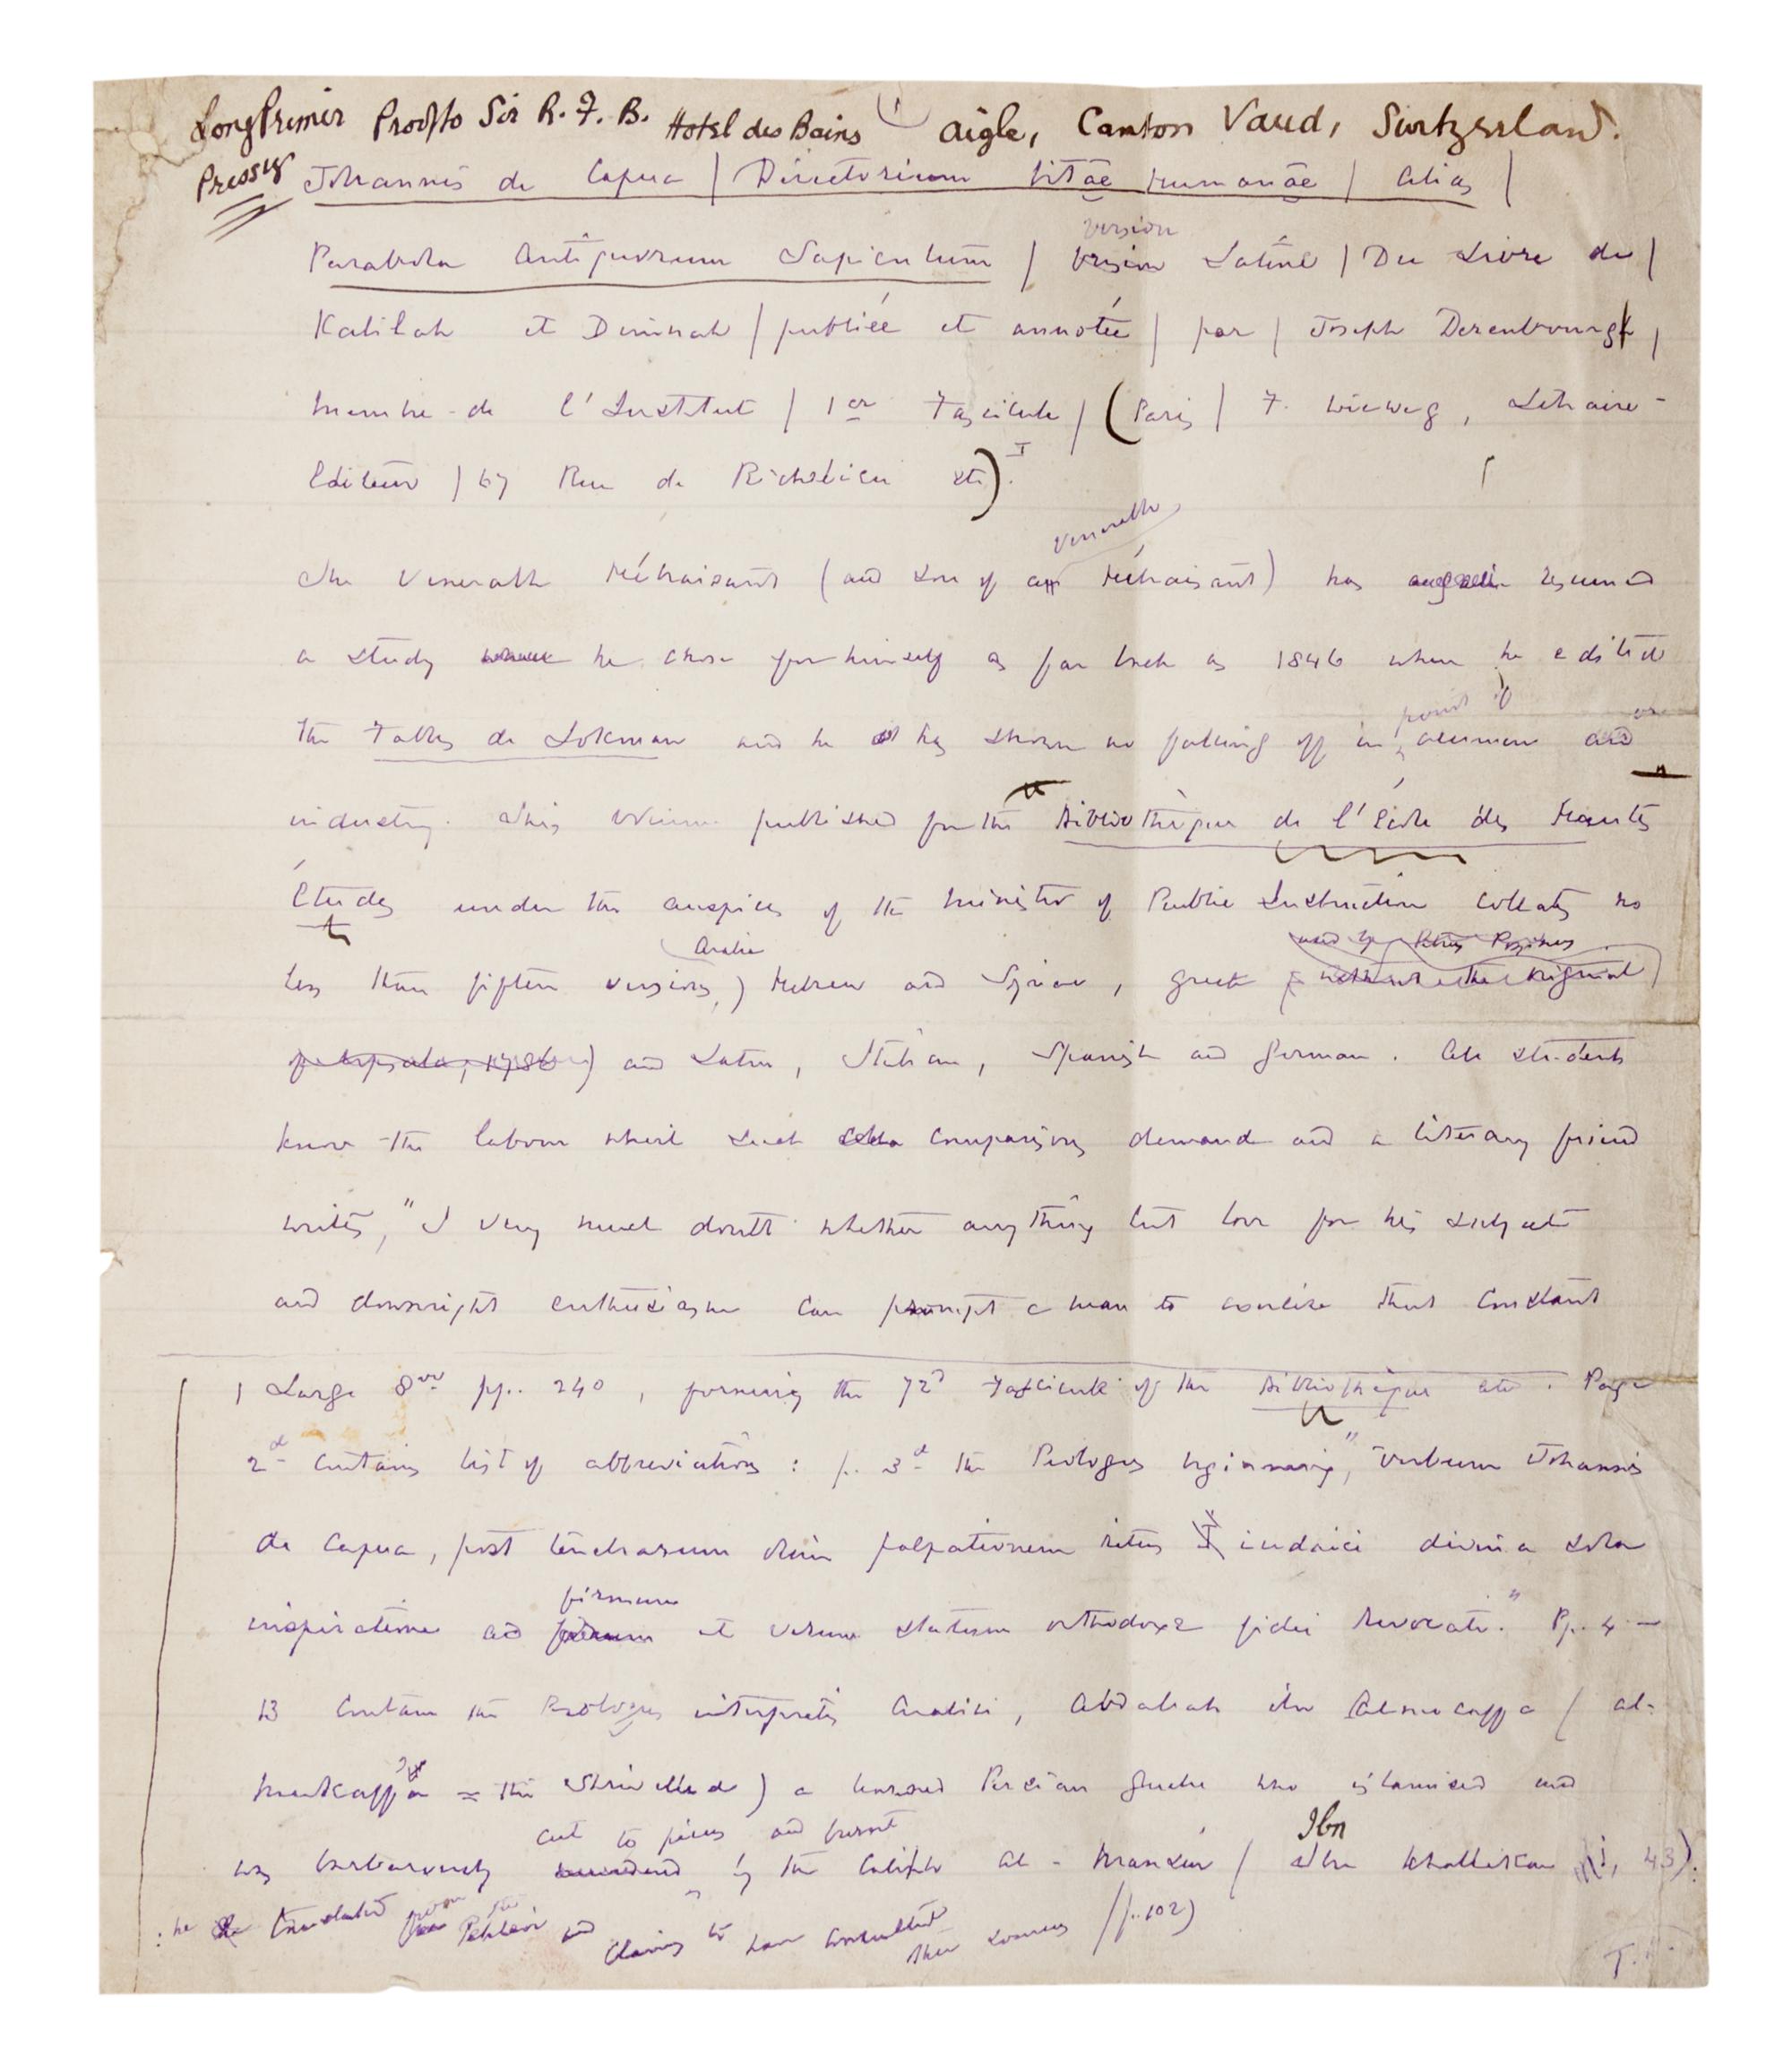 (1)
Long Primer Proof to Sir R. F. B. Hotel des Bains Aigle, Canton Vaud, Switzerland.
Pressing
Johannis de Capua / Directorium vitæ humanæ / alias /
version
Parabola Antiquorum Sapientum / version Latine / Du Livre de /
Kalilah et Dimnah / publiée et annotée / par / Joseph Derenbourg /
Membre de l'Institut / 1er Fascicule / (Paris / F. Vieweg, Libraire-
Editeur / 67 Rue de Richelieu etc). 1
venerable
The venerable Hébraisant (and son of a Hébraisant) has again resumed
a study he chose for himself as far back as 1846 when he edited
point of or
the Fables de Lokman and he has shown no falling off in acumen and
industry. This volume published for the Bibliothèque de l'école des Hautes
Études under the auspices of the Minister of Public Instruction collates no
Arabic and of Petrus Possinus
less than fifteen versions, Hebrew and Syriac, Greek without the original
1786) and Latin, Italian, Spanish and German. All students
know the labour which such comparisons demand and a literary friend
writes, "I very much doubt whether anything but love for his subject
and downright enthusiasm can prompt a man to exercise that constant
1 Large 8vo pp. 240, forming the 72d Fascicule of the Bibliothèque etc. Page
2d contains list of abbreviations: p. 3d the Prologus beginning, "Verbum Johannis
de Capua, post tenebrarum olim palpationem ritus iudaici divina sola
firmum
inspiratione ad et verum statum orthodoxe fidei revocati." Pp. 4-
13 contain the Prologus interpretis Arabici, Abdalah ibn Almocaffa (al-
Mukaffa = the shrivelled) a learned Persian Guebre who islamised and
cut to pieces and burnt Ibn
was barbarously murdered by the Caliph Al-Mansúr (Ibn Khallikan i, 43):
: he translated from the Pehlevi and claims to have consulted other sources (p. 102)